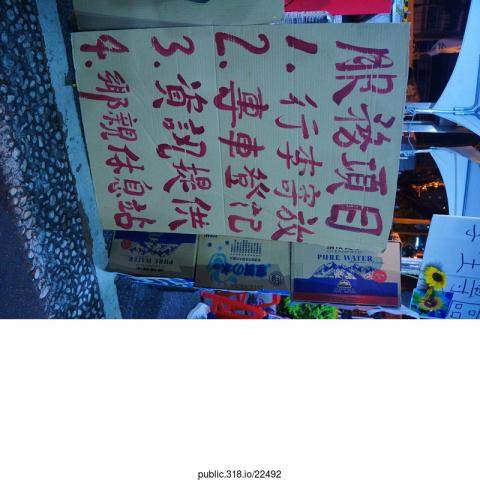 服務項目
1. 行李寄放
2. 專車登記
3. 資訊提供
4. 鄉親休息站
PURE WATER
PURE WATER
public.318.io/22492